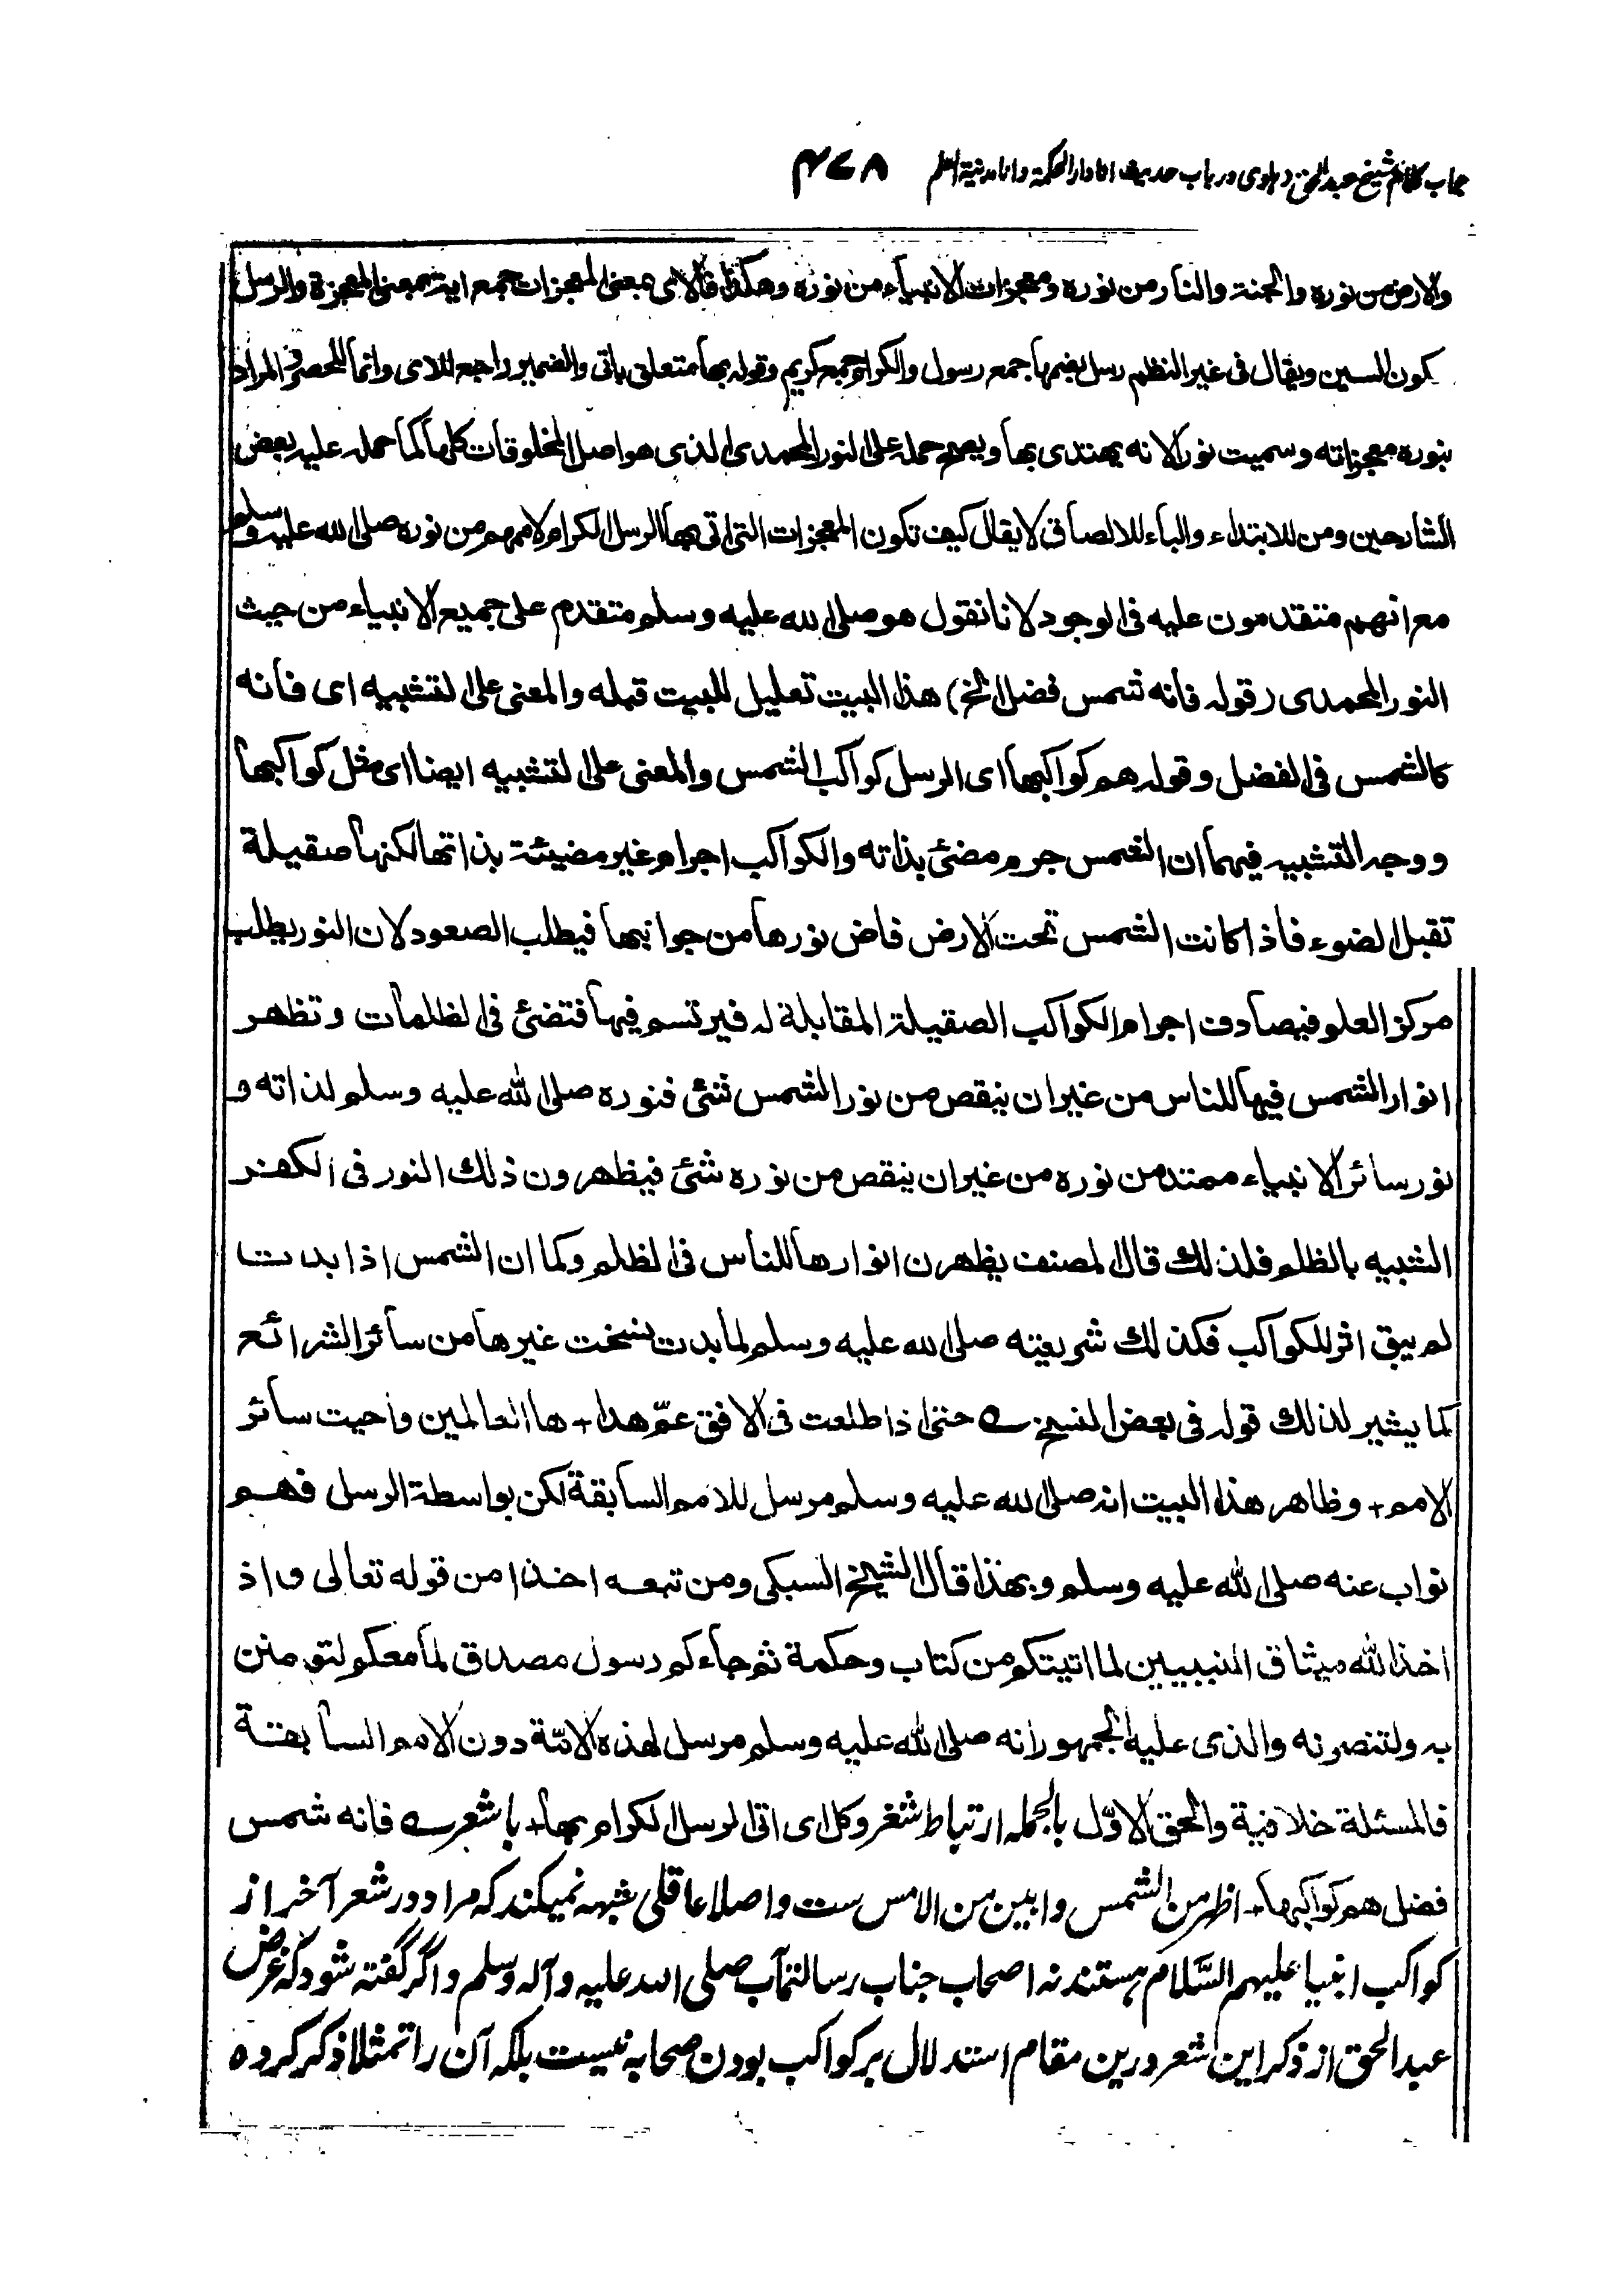 جواب کلام شیخ عبدالحق دہلوی در باب حدیث انا دار الحکمة وانا مدینة العلم ۴۷۸
والارض من نوره والجنة والنار من نوره ومعجزات الانبیاء من نوره وهکذا فالای بمعنی المعجزات جمع ایة بمعنی المعجزة والرسل
بسکون السین ویقال فی غیر النظم رسل بضمها جمع رسول والکرام جمع کریم وقوله بها متعلق باتی والضمیر راجع للای وانما للحصر فی المراد
بنوره معجزاته وسمیت نورا لانه یهتدی بها ویصح حمله علی النور المحمدی الذی هو اصل المخلوقات کلها کما حمله علیه بعض
الشارحین ومن للابتداء والباء للالصاق لا یقال کیف تکون المعجزات التی اتی بها الرسل الکرام لاممهم من نوره صلی الله علیه وسلم
مع انهم متقدمون علیه فی الوجود لانا نقول هو صلی الله علیه وسلم متقدم علی جمیع الانبیاء من حیث
النور المحمدی (قوله فانه شمس فضل الخ) هذا البیت تعلیل للبیت قبله والمعنی علی التشبیه ای فانه
کالشمس فی الفضل وقوله هم کواکبها ای الرسل کواکب الشمس والمعنی علی التشبیه ایضا ای مثل کواکبها
ووجه التشبیه فیهما ان الشمس جرم مضئ بذاته والکواکب اجرام غیر مضیئة بذاتها لکنها صقیلة
تقبل الضوء فاذا کانت الشمس تحت الارض فاض نورها من جوانبها فیطلب الصعود لان النور یطلب
مرکز العلو فیصادف اجرام الکواکب الصقیلة المقابلة له فیرتسم فیها فتضئ فی الظلمات وتظهر
انوار الشمس فیها للناس من غیر ان ینقص من نور الشمس شئ فنوره صلی الله علیه وسلم لذاته و
نور سائر الانبیاء ممتد من نوره من غیر ان ینقص من نوره شئ فیظهرون ذلك النور فی الکفر
الشبیه بالظلم فلذلك قال المصنف یظهرن انوارها للناس فی الظلم وکما ان الشمس اذا بدت
لم یبق اثر للکواکب فکذلك شریعته صلی الله علیه وسلم لما بدت نسخت غیرها من سائر الشرائع
کما یشیر لذلك قوله فی بعض النسخ ؎ حتی اذا طلعت فی الافق عمّ هدا + ها العالمین واحیت سائر
الامم + وظاهر هذا البیت انه صلی الله علیه وسلم مرسل للامم السابقة لکن بواسطة الرسل فهم
نواب عنه صلی الله علیه وسلم وبهذا قال الشیخ السبکی ومن تبعه اخذا من قوله تعالی واذ
اخذ الله میثاق النبیین لما اتیتکم من کتاب وحکمة ثم جاءکم رسول مصدق لما معکم لتومنن
به ولتنصرنه والذی علیه الجمهور انه صلی الله علیه وسلم مرسل لهذه الامّة دون الامم السابقة
فالمسئلة خلافیة والحق الاوّل بالجمله ارتباط شعر وکل ای اتی الرسل الکرام بها + با شعر ؎ فانه شمس
فضل هم کواکبها + اظهر من الشمس وابین من الامس ست واصلا عاقلی شبهه نمیکند که مراد در شعر آخر از
کواکب انبیا علیهم السَّلام هستند نه اصحاب جناب رسالتمآب صلی الله علیه وآله وسلم واگر گفته شود که غرض
عبدالحق از ذکر این شعر درین مقام استدلال بر کواکب بودن صحابه نیست بلکه آن را تمثلا ذکر کرده